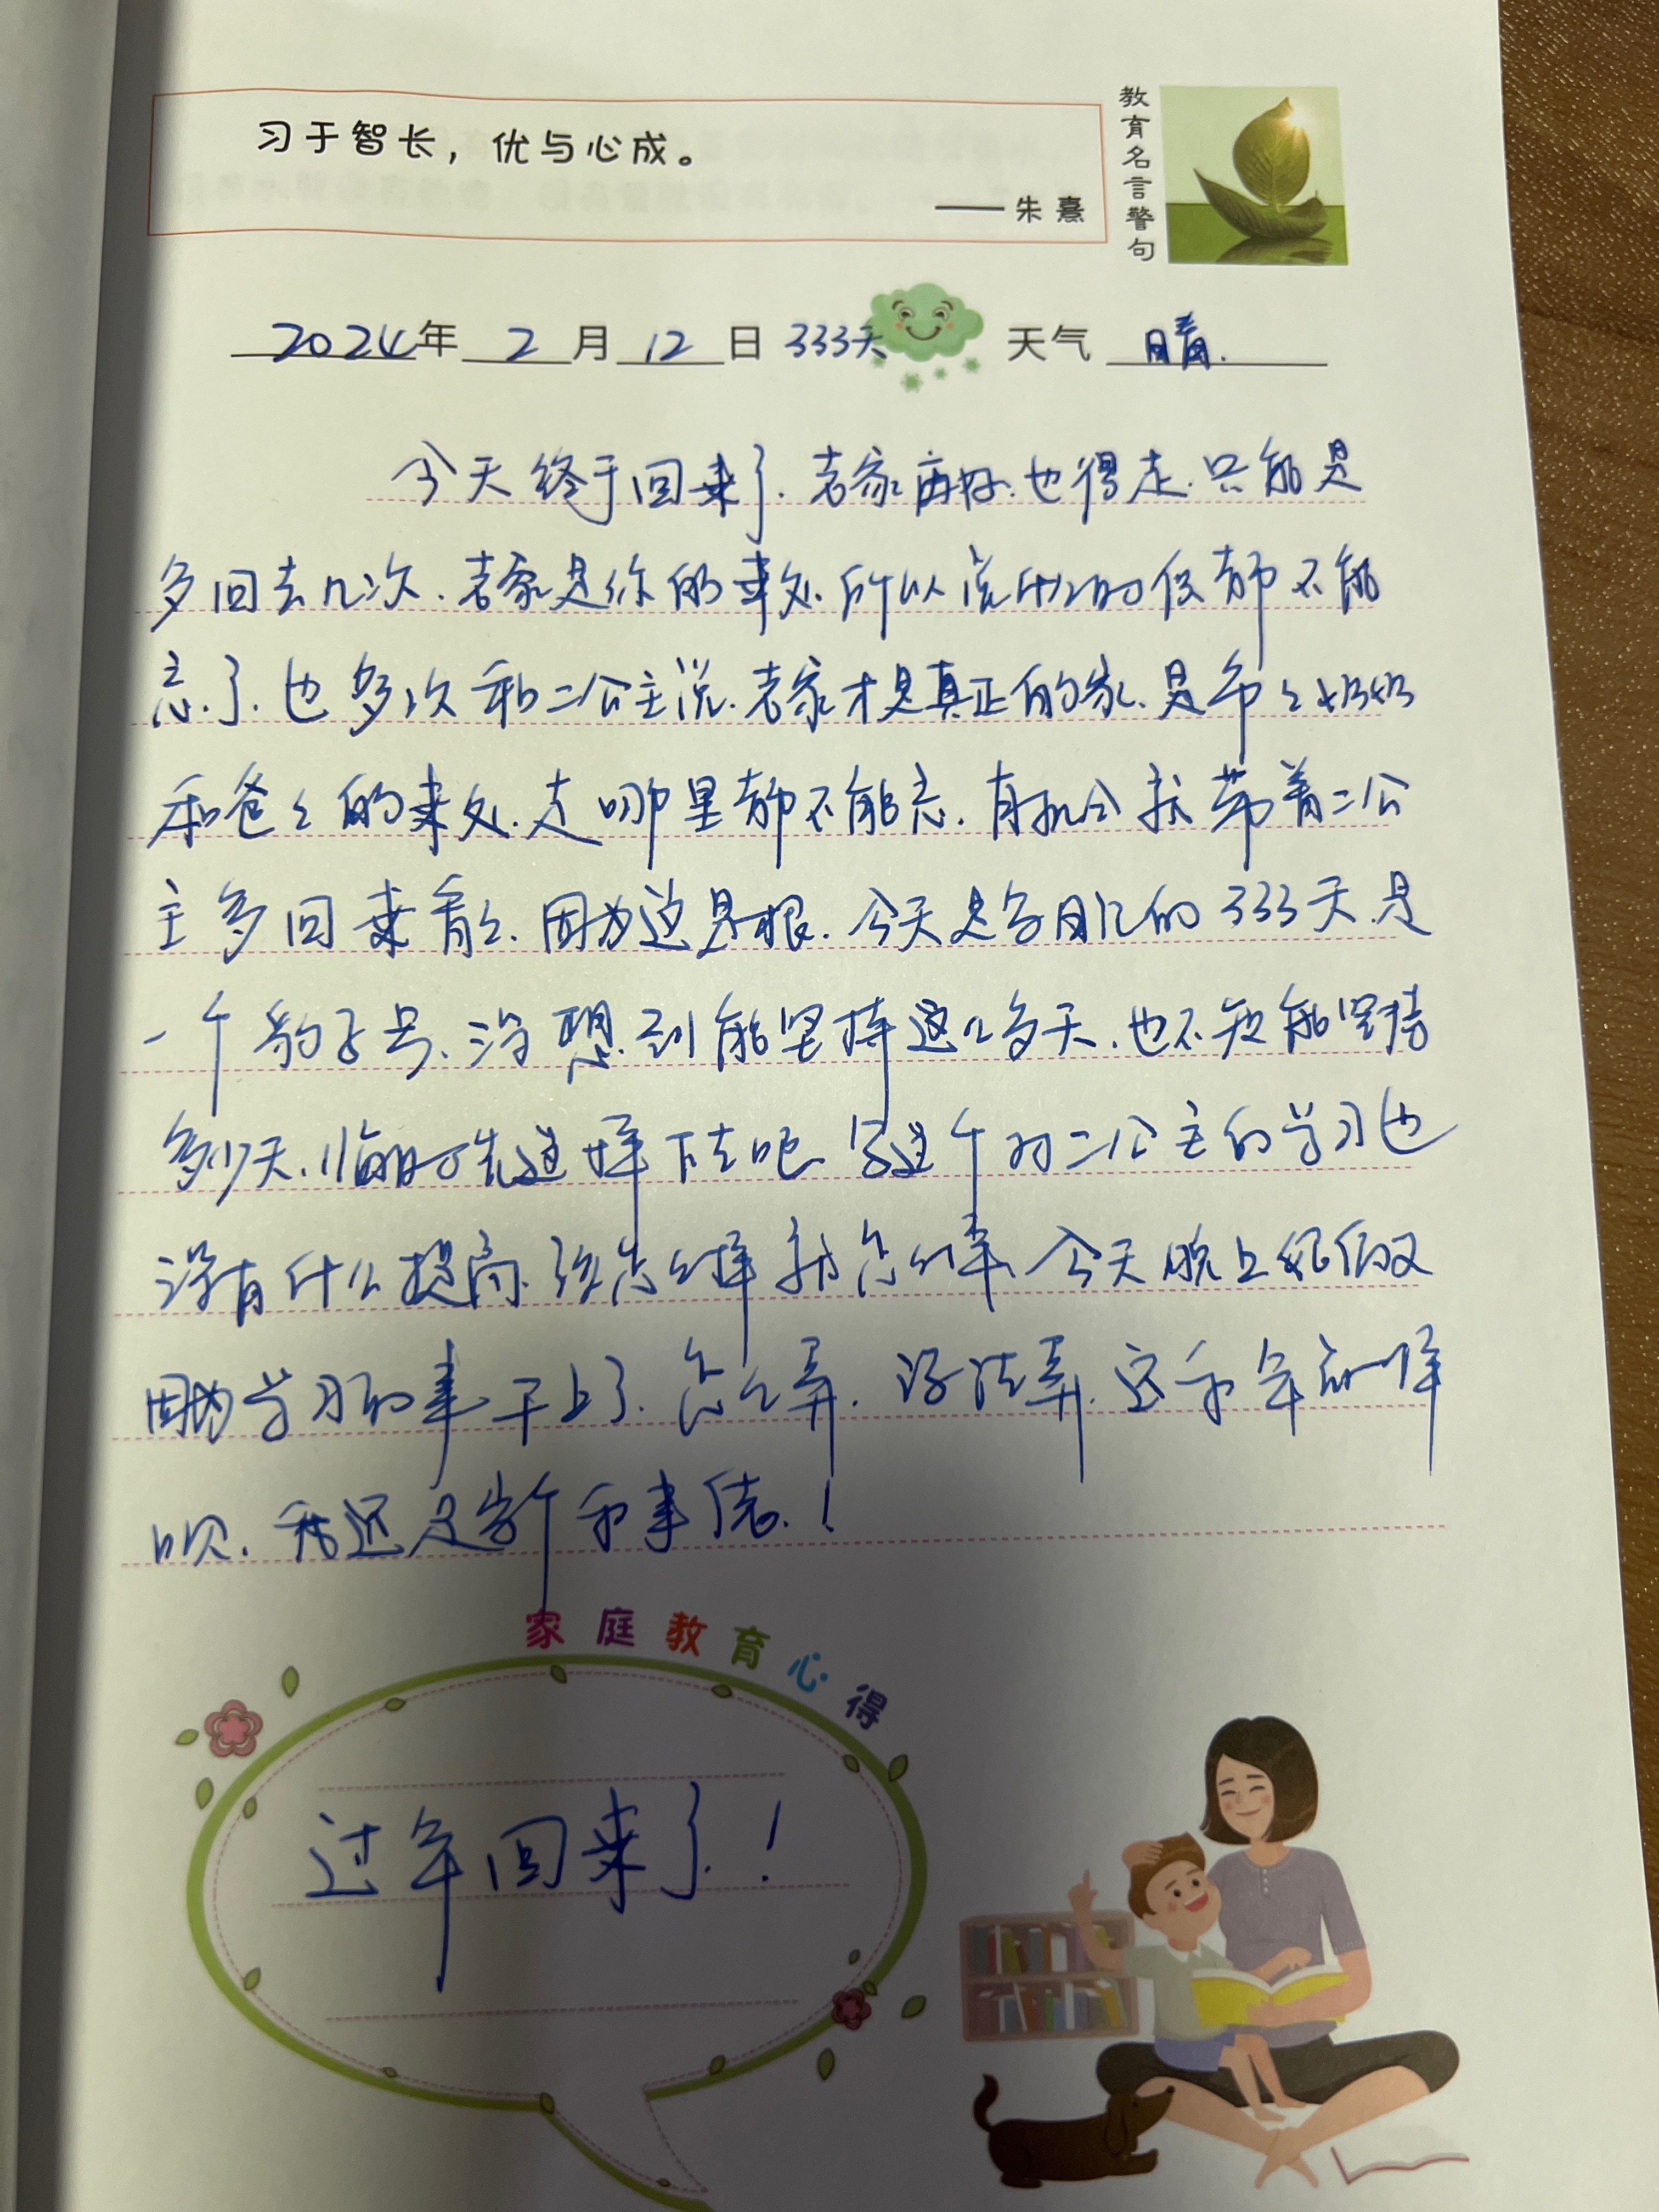 习于智长，优与心成。
——朱熹
教育名言警句
2024年 2月 12日 333天 天气 晴.
今天终于回来了.老家再好.也得走.只能是
多回去几次.老家是你的来处.所以说什么时候都不能
忘了.也多次和二公主说.老家才是真正的家.是爷爷奶奶
和爸爸的来处.走哪里都不能忘.有机会就带着二公
主多回来看看.因为这是根.今天是写日记的333天.是
一个豹子号.没想到能坚持这么多天.也不知能坚持
多少天.临时先这样下去吧.写这个对二公主的学习也
没有什么提高.该怎么样就怎么样.今天晚上娘俩又
因为学习的事干上了.怎么弄.没法弄.还和年前一样
呗.我还是当个和事佬.!
家庭教育心得
过年回来了.!